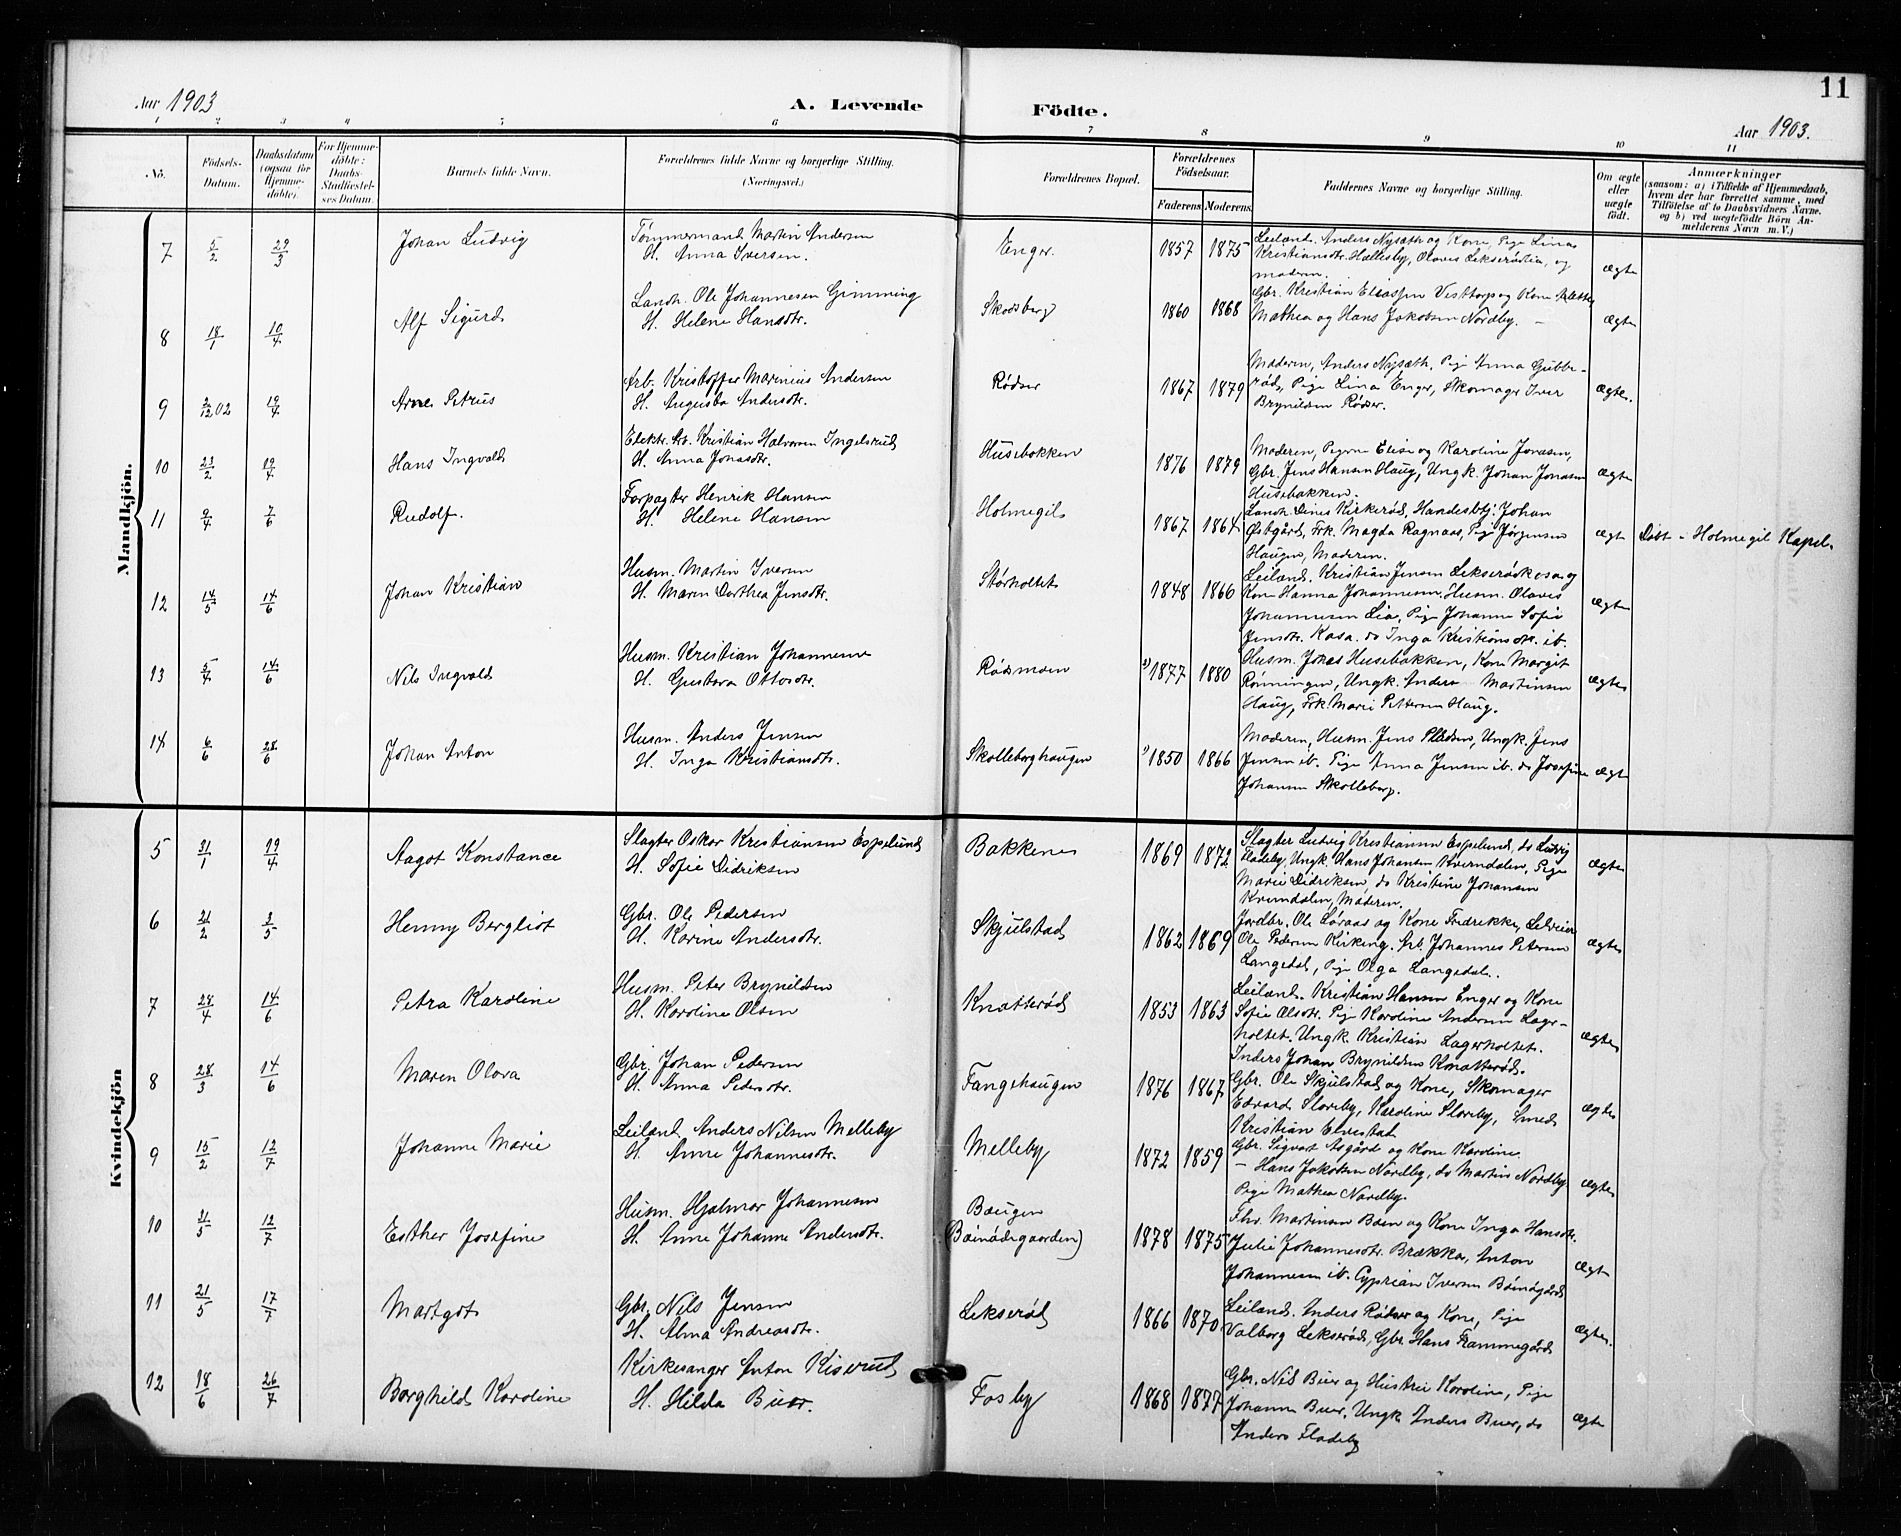 11
Aar 1903
A. Levende
Födte.
Aar 1903.
1 2 3 4 5 6 7 8 9 10 11
No.
Födsels-
Datum.
Daabsdatum
(ogsaa för
Hjemme-
döbte).
For Hjemme-
döbte:
Daabs-
Stadfæstel-
ses Datum.
Barnets fulde Navn.
Forældrenes fulde Navne og borgerlige Stilling.
(Næringsvei.)
Forældrenes Bopæl.
Forældrenes
Födselsaar.
Faderens Moderens
Faddernes Navne og borgerlige Stilling.
Om ægte
eller
uægte
födt.
Anmærkninger
(saasom: a) i Tilfælde af Hjemmedaab,
hvem der har forrettet samme, med
Tilföielse af to Daabsvidners Navne.
og b) ved uægtefödte Börn An-
melderens Navn m.V.)
Mandkjön.
7 5/2 29/3 Johan Ludvig
Tømmermand Martin Andersen
H. Anna Iversen.
Enger. 1857 1875
Leiland. Anders Nysæth og Kone, Pige Lina
Kristiansdtr. Hællesby, Olavis Lekserødlia, og
moderen.
ægte
8 18/1 10/4 Alf Sigurd
Landh. Ole Johannesen Gimming
H. Helene Hansdtr.
Skodsberg 1860 1868
Gbr. Kristian Eliassen Vesttorp og Kone
Mathea og Hans Jakobsen Nordby. -
ægte
9 2/12 02 19/4 Arne Petrus
Arb. Kristoffer Marinius Andersen
H. Augusta Andersdtr.
Rødser 1867 1879
Moderen, Anders Nysæth, Pige Anna Gubbe-
rød, Pige Lina Enger, Skomager Iver
Brynildsen Rødser.
ægte.
10 23/2 19/4 Hans Ingvald
Elektr. Arb. Kristian Halvorsen Ingelsrud
H. Anna Jonasdtr.
Husebakken 1876 1879
Moderen, Pigerne Elise og Karoline Jonasen,
Gbr. Jens Hansen Haug, Ungk. Johan Jonasen
Husebakken.
ægte
11 9/4 7/6 Rudolf.
Forpagter Henrik Hansen
H. Helene Hansen
Holmegil 1867 1864
Landh. Dines Kirkerød, Handelsbtj. Johan
Østgård, Frk. Magda Ragnaas, Pige Jørgensen
Haugen, Moderen.
ægte
Døbt i Holmegil Kapel.
12 14/5 14/6 Johan Kristian
Husm. Martin Iversen
H. Maren Dorthea Jensdtr.
Størholtet 1848 1866
Leiland. Kristian Jensen Lekserødkasa og
Kone Hanna Johannesen. Husm. Olavis
Johannesen Lia, Pige Johanne Sofie
Jensdtr. Kasa. do Inga Kristiansdtr. ib.
ægte
13 5/4 14/6 Nils Ingvald
Husm. Kristian Johannesen
H. Gustava Ottosdtr.
Rødsmoen 1877 1880
Husm. Johas Husebakken, Kone Margit
Rønningen, Ungk. Anders Martinsen
Haug, Frk. Marie Pettersen Haug.
ægte
14 6/6 28/6 Johan Anton
Husm. Anders Jensen
H. Inga Kristiansdtr.
Skolleborghaugen 1850 1866
Moderen, Husm. Jens Pladsen, Ungk. Jens
Jensen ib. Pige Anna Jensen ib. do Josefine
Johansen Skolleborg.
ægte
Kvindekjön
5 31/1 19/4 Aagot Konstance
Slagter Oskar Kristiansen Espelund
H. Sofie Didriksen
Bakkene 1869 1872
Slagter Ludvig Kristiansen Espelund, do Ludvig
Fladeby, Ungk. Hans Johansen Kverndalen, Pige
Marie Didriksen, do Kristine Johansen
Kverndalen, Moderen.
ægte
6 21/2 3/5 Henny Bergliot
Gbr. Ole Pedersen
H. Karine Andersdtr.
Skjulstad 1862 1869
Jordbr. Ole Løraas og Kone Fredrikke,
Ole Pedersen Kirkeng. Arb. Johannes Petersen
Langedal, Pige Olga Langedal.
ægte
7 24/4 14/6 Petra Karoline
Husm. Peter Brynildsen
H. Karoline Olsen
Knatterød 1853 1863
Leiland. Kristian Hansen Enger og Kone
Sofie Olsdtr. Pige Karoline Andersen Lager-
holtet. Ungk. Kristian Lagerholtet.
Inders Johan Brynildsen Knatterød.
ægte
8 28/3 14/6 Maren Olava
Gbr. Johan Pedersen
H. Anna Pedersdtr.
Fangehaugen 1876 1867
Gbr. Ole Skjulstad og Kone, Skomager
Edvard Sloreby, Karoline Sloreby, Smed
Kristian Elvestad
ægte
9 15/2 12/7 Johanne Marie
Leiland Anders Nilsen Melleby
H. Anne Johannesdtr.
Melleby 1872 1859
Gbr. Sigvart Asgård og Kone Karoline.
- Hans Jakobsen Nordby, do Martin Nordby
Pige Mathea Nordby.
ægte
10 31/5 12/7 Esther Josefine
Husm. Hjalmar Johannesen
H. Anne Johanne Andersdtr.
Baugen
(Böinödegaarden) 1878 1875
Thv. Martinsen Böen og Kone Inga Hansdtr.
Julie Johannesdtr. Brækka, Anton
Johannesen ib. Cyprian Iversen Böinögård
ægte
11 21/5 17/7 Martgot
Gbr. Nils Jensen
H. Alma Andreasdtr.
Lekserød 1866 1870
Leiland. Anders Rødser og Kone, Pige
Valborg Lekserød, Gbr. Hans Frammegård
ægte.
12 18/6 26/7 Borghild Karoline
Kirkesanger Anton Kiserud
H. Hilda Buer.
Fosby 1868 1877
Gbr. Nils Buer og Hustru Karoline, Pige
Johanne Buer, Ungk. Anders Buer, do
Anders Fladeby
ægte